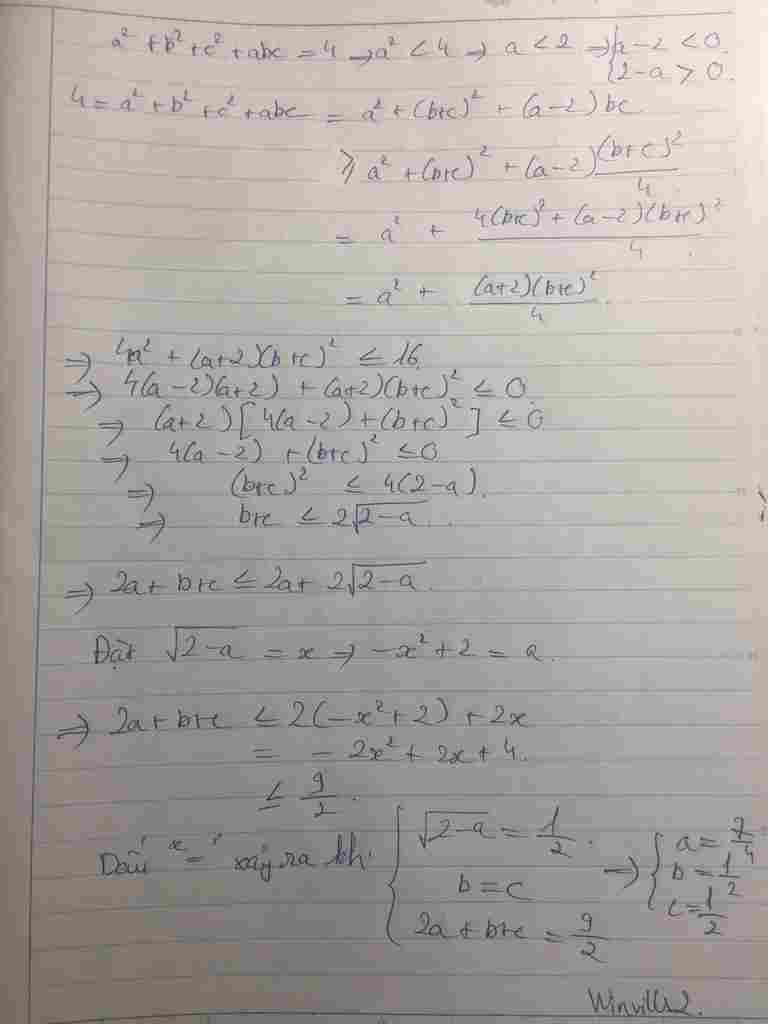 a² + b² + c² + abc = 4 → a² < 4 → a < 2 ⇒ { a - 2 < 0
2 - a > 0.
4 = a² + b² + c² + abc = a² + (b+c)² + (a-2) bc
≥ a² + (b+c)² + (a-2) (b+c)²/4
= a² + (4(b+c)² + (a-2)(b+c)²)/4.
= a² + ((a+2)(b+c)²)/4.
⇒ 4a² + (a+2)(b+c)² ≤ 16
⇒ 4(a-2)(a+2) + (a+2)(b+c)² ≤ 0
⇒ (a+2)[4(a-2) + (b+c)²] ≤ 0
⇒ 4(a-2) + (b+c)² ≤ 0
⇒ (b+c)² ≤ 4(2-a).
⇒ b+c ≤ 2√(2-a).
⇒ 2a + b+c ≤ 2a + 2√(2-a).
Đặt √(2-a) = x ⇒ -x² + 2 = a.
⇒ 2a + b+c ≤ 2(-x² + 2) + 2x
= -2x² + 2x + 4.
≤ 9/2.
Dấu "=" xảy ra khi { √(2-a) = 1/2. → { a = 7/4
b = c b = 1/2
2a + b+c = 9/2 c = 1/2